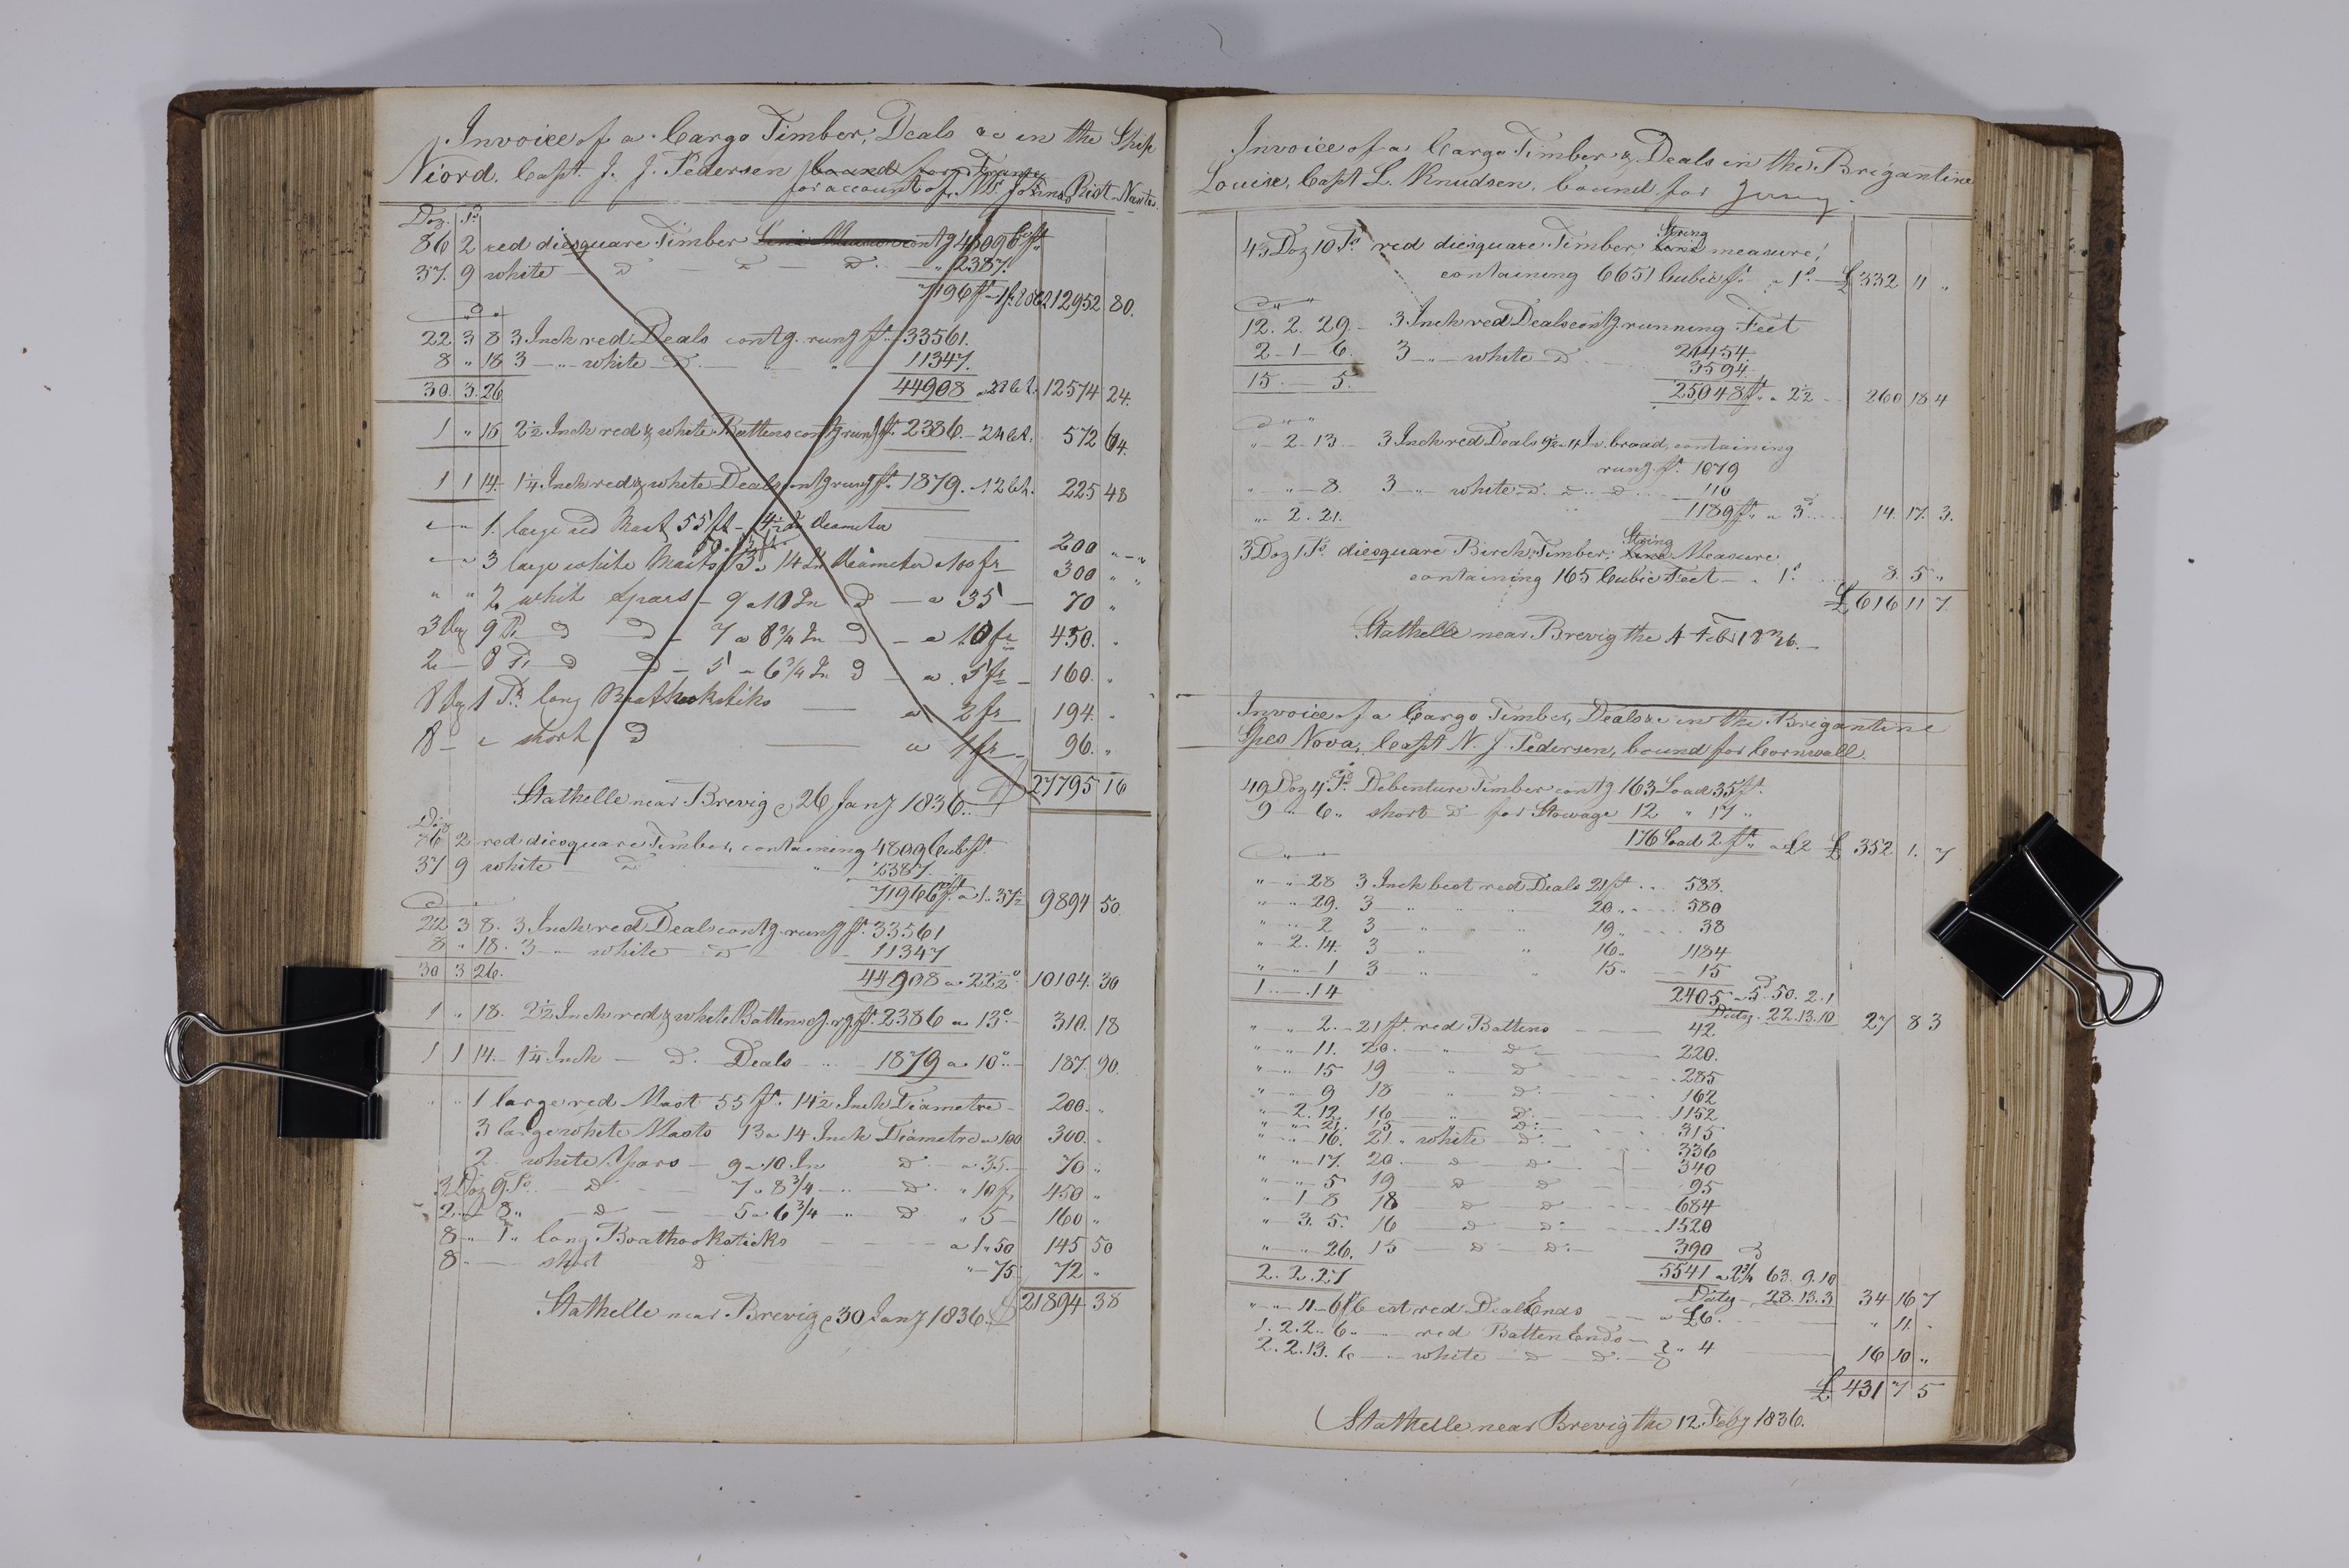 Invoice of a Cargo Timber, Deals &c in the Ship
Niord, Capt. J. J. Pedersen bound for France
for account of Mr. Riot Nantes.
Doz. Ps
86 2 red diesquare Timber contg 4809 Cubft
37. 9 white — D — D — D. — " 2387.
7196 ft - 1 f 80 c 12952 80.
22 3 8 3 Inch red Deals contg. rung ft. 33561.
8 " 18 3 — " — white D. — " " 11347.
30. 3. 26 44908 a 28 ct. 12574 24.
1 " 18 2½ Inch red & white Battens contg rung ft. 2386. - 24 ct. 572 64.
1 1 14. 1¼ Inch red & white Deals contg rung ft. 1879. - 12 ct. 225 48
" " 1. large red Mast 55 ft - 14½ In diameter 200 " "
" " 3 large white Masts 13 a 14 In Diameter a 100 fr 300 " "
" " 2 white Spars — 9 a 10 In D — a 35 — 70 "
3 Doz 9 Ps D D — 7 a 8¾ In D — a 10 fr 450. "
2 — 8 Ps D D — 5 a 6¾ In D — a 5 fr — 160. "
8 Doz 1 Ps. long Boathooksticks — a 2 fr 194. "
8 — " short D — a 1 fr 96. "
27795 16
Stathelle near Brevig 26 Jany 1836.
Doz
86 2 red diesquare Timber, containing 4809 Cubft.
37 9 white D " 2387.
7196 Cft. a 1. 37½ 9894 50
22 3 8. 3 Inch red Deals contg. rung ft. 33561
8 " 18. 3 — " white — D — 11347
30 3 26. 44908 a 22½ c 10104. 30
1 " 18. 2½ Inch red & white Battens cg. rg ft. 2386 a 13c 310. 18
1 1 14. 1¼ Inch — D. Deals — 1879 a 10c — 187. 90.
" " 1 large red Mast 55 ft. 14½ Inch Diametre - 200. "
3 large white Masts 13 a 14 Inch Diametre a 100 300. "
2. white Spars — 9 a 10. In D — a 35. — 70 "
3 Doz 9 Ps. — D — 7 a 8¾ — " D. " 10 fr 450 "
2 " 8 " — D — 5 a 6¾ — " D " 5 — 160 "
8 " 1 " long Boathooksticks — a 1 " 50 145 50
8 " — short D " — 75. 72 "
21894 38
Stathelle near Brevig 30 Jany 1836.
Invoice of a Cargo Timber & Deals in the Brigantine
Louise, Capt L. Knudsen, bound for Jersey.
String
43 Doz 10 Ps. red diesquare Timber, measure,
containing 6651 Cubic ft. a 1s. — £ 332 11 "
12. 2. 29. — 3 Inch red Deals contg running Feet
21454.
2 - 1 - 6. 3 — " — white — D 3594.
15. — 5. 25048 ft. a 2½ 260 18 4
" 2 - 13 — 3 Inch red Deals 9½ a 11 In. broad, containing
rung ft. 1079
" — " — 8. 3 — " white — D. D " D. 110
" 2. 21. 1189 ft. a 3d 14. 17. 3.
String
3 Doz 1 Ps. diesquare Birch Timber, Measure
containing 165 Cubic Feet — a 1s. 8. 5 "
£ 616 11 7.
Stathelle near Brevig the 4 Feb 1836. —
Invoice of a Cargo Timber, Deals &c in the Brigantine
Spes Nova, Capt N. J. Pedersen, bound for Cornwall.
49 Doz 4 Ps Debenture Timber contg 163 Load 35 ft.
9 " 6 " short D for Stowage 12 " 17 "
176 Load 2 ft. a £2 £ 352 1. 7
" — " — 28 3 Inch best red Deals 21 ft. . . 588.
" — " — 29. 3 " " " 20 " 580
" — " 2 3 " " " 19 " 38
" 2. 14. 3 " " 16 " 1184
" — " — 1 3 " " 15 " 15
1 " — " 14 2405 a 5d 50. 2. 1
Duty. 22. 13. 10 27 8 3
" " 2. — 21 ft. red Battens — 42
" — " 11. 20. — " D — 220.
" — " 15 19 " D 285
" — " 9 18 " D 162
" 2. 12. 16 — " D. — 1152
" " 21. 15 — " D. — 315
" " 16. 21. " white D. 336
" — " 17. 20. — D D. 340
" — " 5 19 — D D 95
" 1 - 8 18 D D 684
" 3. 5. 16 — D D. 1520
" — " 26. 15 — D — D. — 390
2. 2. 27 5541 a 2¾ 63. 9. 10
Duty — 28. 13. 3 34 16 7
" — " 11 — 6 ft best red Deal Ends — a £6. " 11. "
1. 2. 2. 6 " — red Batten Ends —
2. 2. 13. 6 — " — white D D. — " 4 16 10 "
£ 431 7 5
Stathelle near Brevig the 12 Feby 1836.